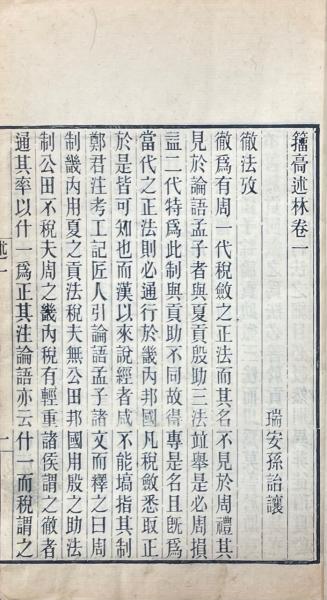 籀廎述林卷一
瑞安孫詒讓
徹法攷
徹爲有周一代稅斂之正法而其名不見於周禮其
見於論語孟子者與夏貢殷助三法竝舉是必周損
益二代特爲此制與貢助不同故得專是名且旣爲
當代之正法則必通行於畿內邦國凡稅斂悉取正
於是皆可知也而漢以來說經者咸不能塙指其制
鄭君注考工記匠人引論語孟子諸文而釋之曰周
制畿內用夏之貢法稅夫無公田邦國用殷之助法
制公田不稅夫周之畿內稅有輕重諸侯謂之徹者
通其率以什一爲正其注論語亦云什一而稅謂之
述一
一